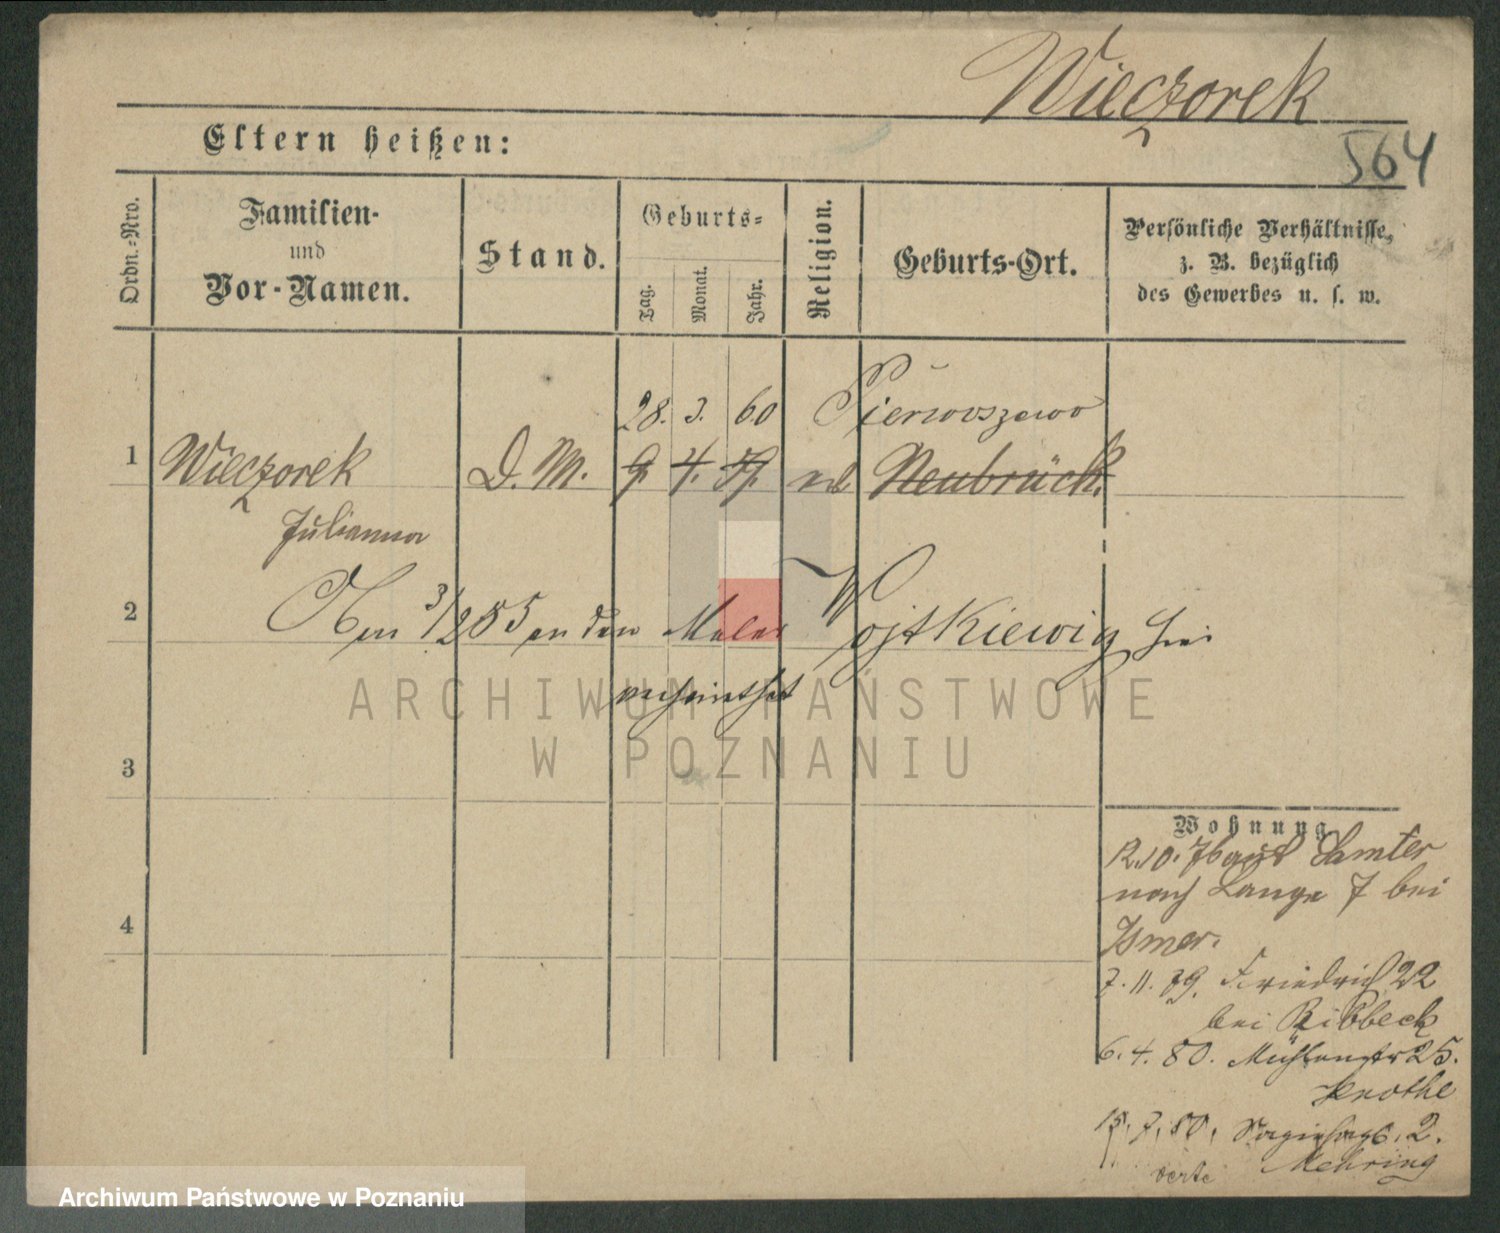 Wieczorek
564
Eltern heißen:
Ordn.-Nro.
Familien-
und
Vor-Namen.
Stand.
Geburts-
Tag.
Monat.
Jahr.
Religion.
Geburts-Ort.
Persönliche Verhältnisse,
z. B. bezüglich
des Gewerbes u. s. w.
28. 3. 60 Pierwoszewo
1 Wieczorek D. M. 9. 4. 59. Neubrück.
Julianna
2
3/2 85 an den Maler Wojtkiewicz hier
verheirathet
ARCHIWUM PAŃSTWOWE
W POZNANIU
3
4
Wohnung
R. 10. 76 aus Samter
nach Lange 7 bei
7. 11. 79. Friedrich 22
bei Ribbeck
6. 4. 80. Mühlenstr 25.
Knothe
15. 7. 80. 2.
Mehring
verte
Archiwum Państwowe w Poznaniu